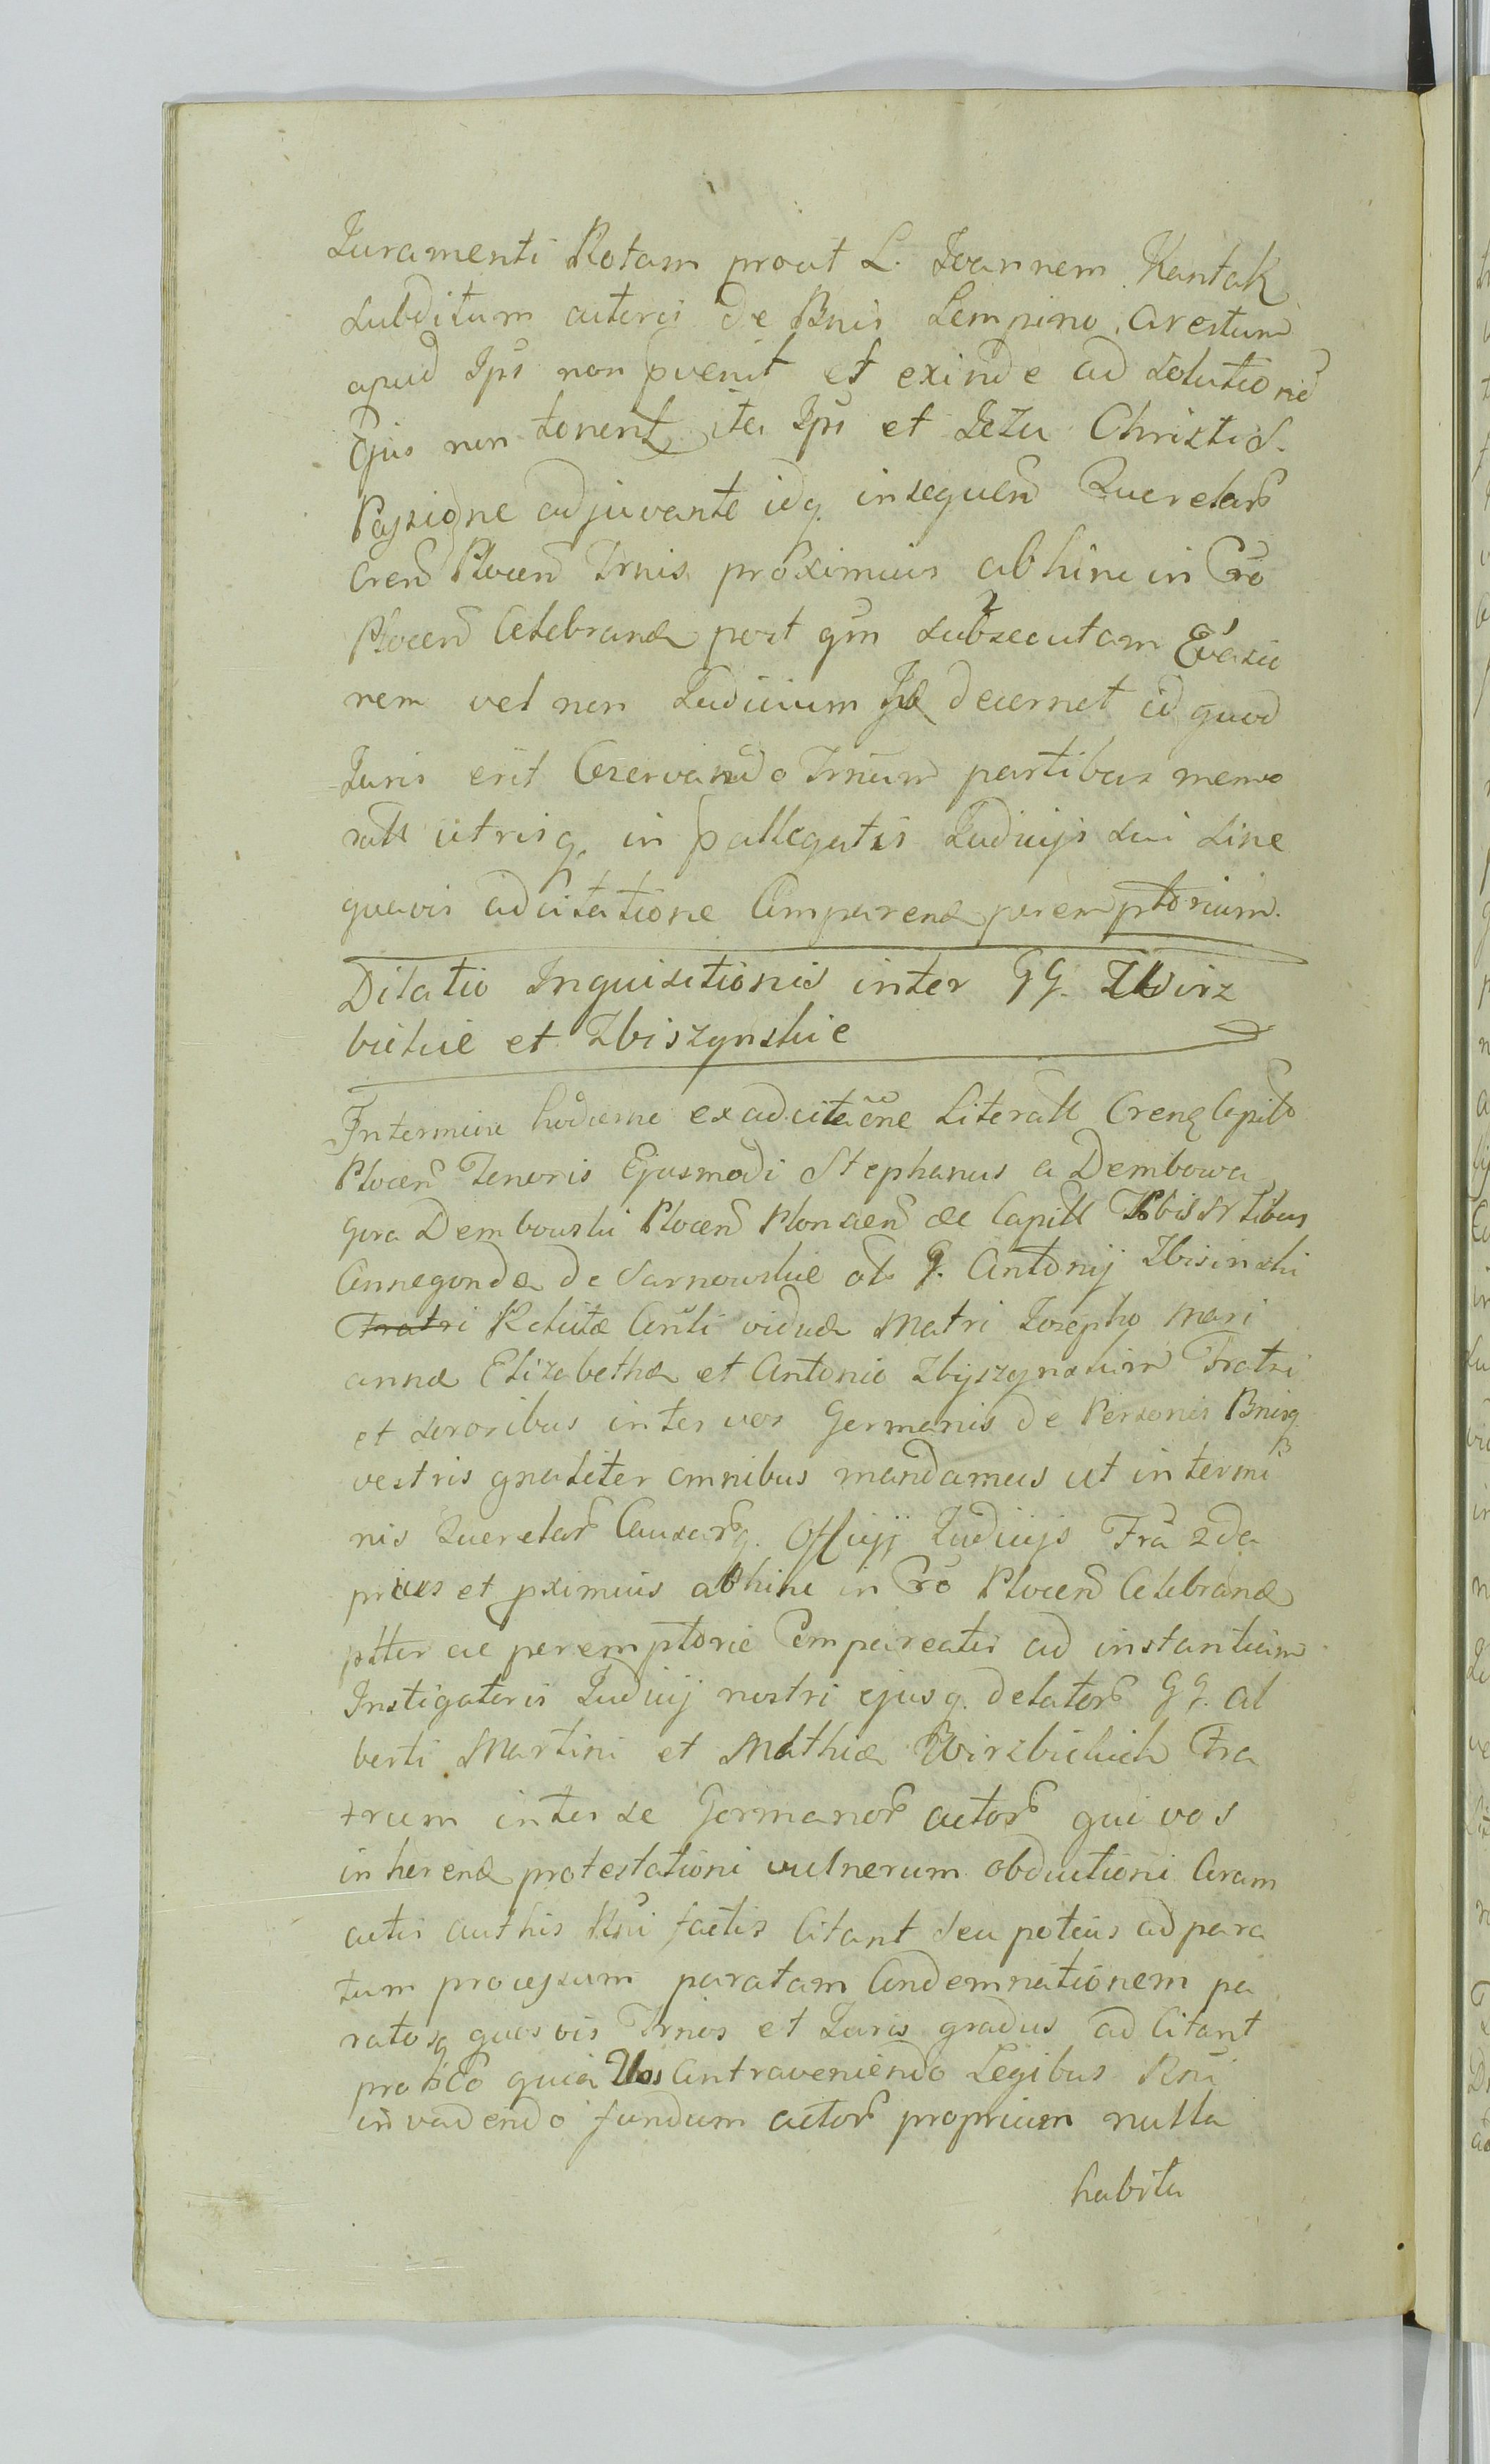 Juramenti Rotam prout L. Joannem Kantak
subditum actoris de Bnis Lempino, arestum
apud Ips non pvenit et exinde ad solutione
Ejus non tenent ita Ips et Jezu Christi S.
Passione adjuvante idq. insequen Querelar
Cren Plocen Trnis proximius abhinc in Cro
Plocen Celebrand post qm subsecutam Evasio
nem vel non Judicium decernet id quod
Juris erit Cservando Trnum partibus memo
ratt utrisq. in pallegatis Judicijs sui sine
quavis adcitatione Comparend peremptorium.
Dilatio Inquisitionis inter GG. Wirz
bickie et Zbiszynskie
In termino hodierno ex adcitaone Literatt Crenq Capitt
Plocen Tenoris Ejusmodi Stephanus a Dembowa
gora Dembowski Plocen Plonscen de Capitt Vobis Nobibus
Annegonda de Sarnowskie ol G. Antonij Zbisinski
Fratri Relictæ Consti viduæ Matri Josepho Mari
annæ Elizabethæ et Antonio Zbyszynskim Fratri
et sororibus inter vos Germanis de Personis Bnisq.
vestris gnaliter omnibus mandamus ut in termi
nis Querelar Causarq. Officij Judicijs Fra 2da
prius et pximius abhinc in Cro Plocen Celebrand
ptter ac peremptorie Compareatis ad instantiam
Instigatoris Judicij nostri ejusq. delator GG. Al
berti Martini et Mathiæ Wirzbickich Fra
trum inter se Germanor actor qui vos
inherend protestationi vulnerum obductioni Coram
actis authis Rni factis Citant seu potius ad para
tum processum paratam Condemnationem pa
ratosq quosvis Trnos et Juris gradus adcitant
pro eo quia Vos Contraveniendo Legibus Rni
invadendo fundum actor proprium nulla
habita